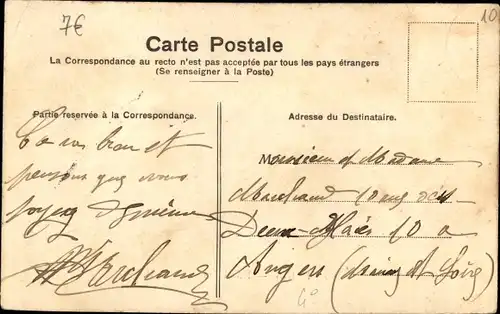 7€
10
Carte Postale
La Correspondance au recto n'est pas acceptée par tous les pays étrangers
(Se renseigner à la Poste)
Partie reservée à la Correspondance.
Ça va bien et
pensons que vous
soyez de même
Marchand
Adresse du Destinataire.
Monsieur et Madame
Marchand 10
Deux-Haies 10 a
Angers (Maine et Loire)